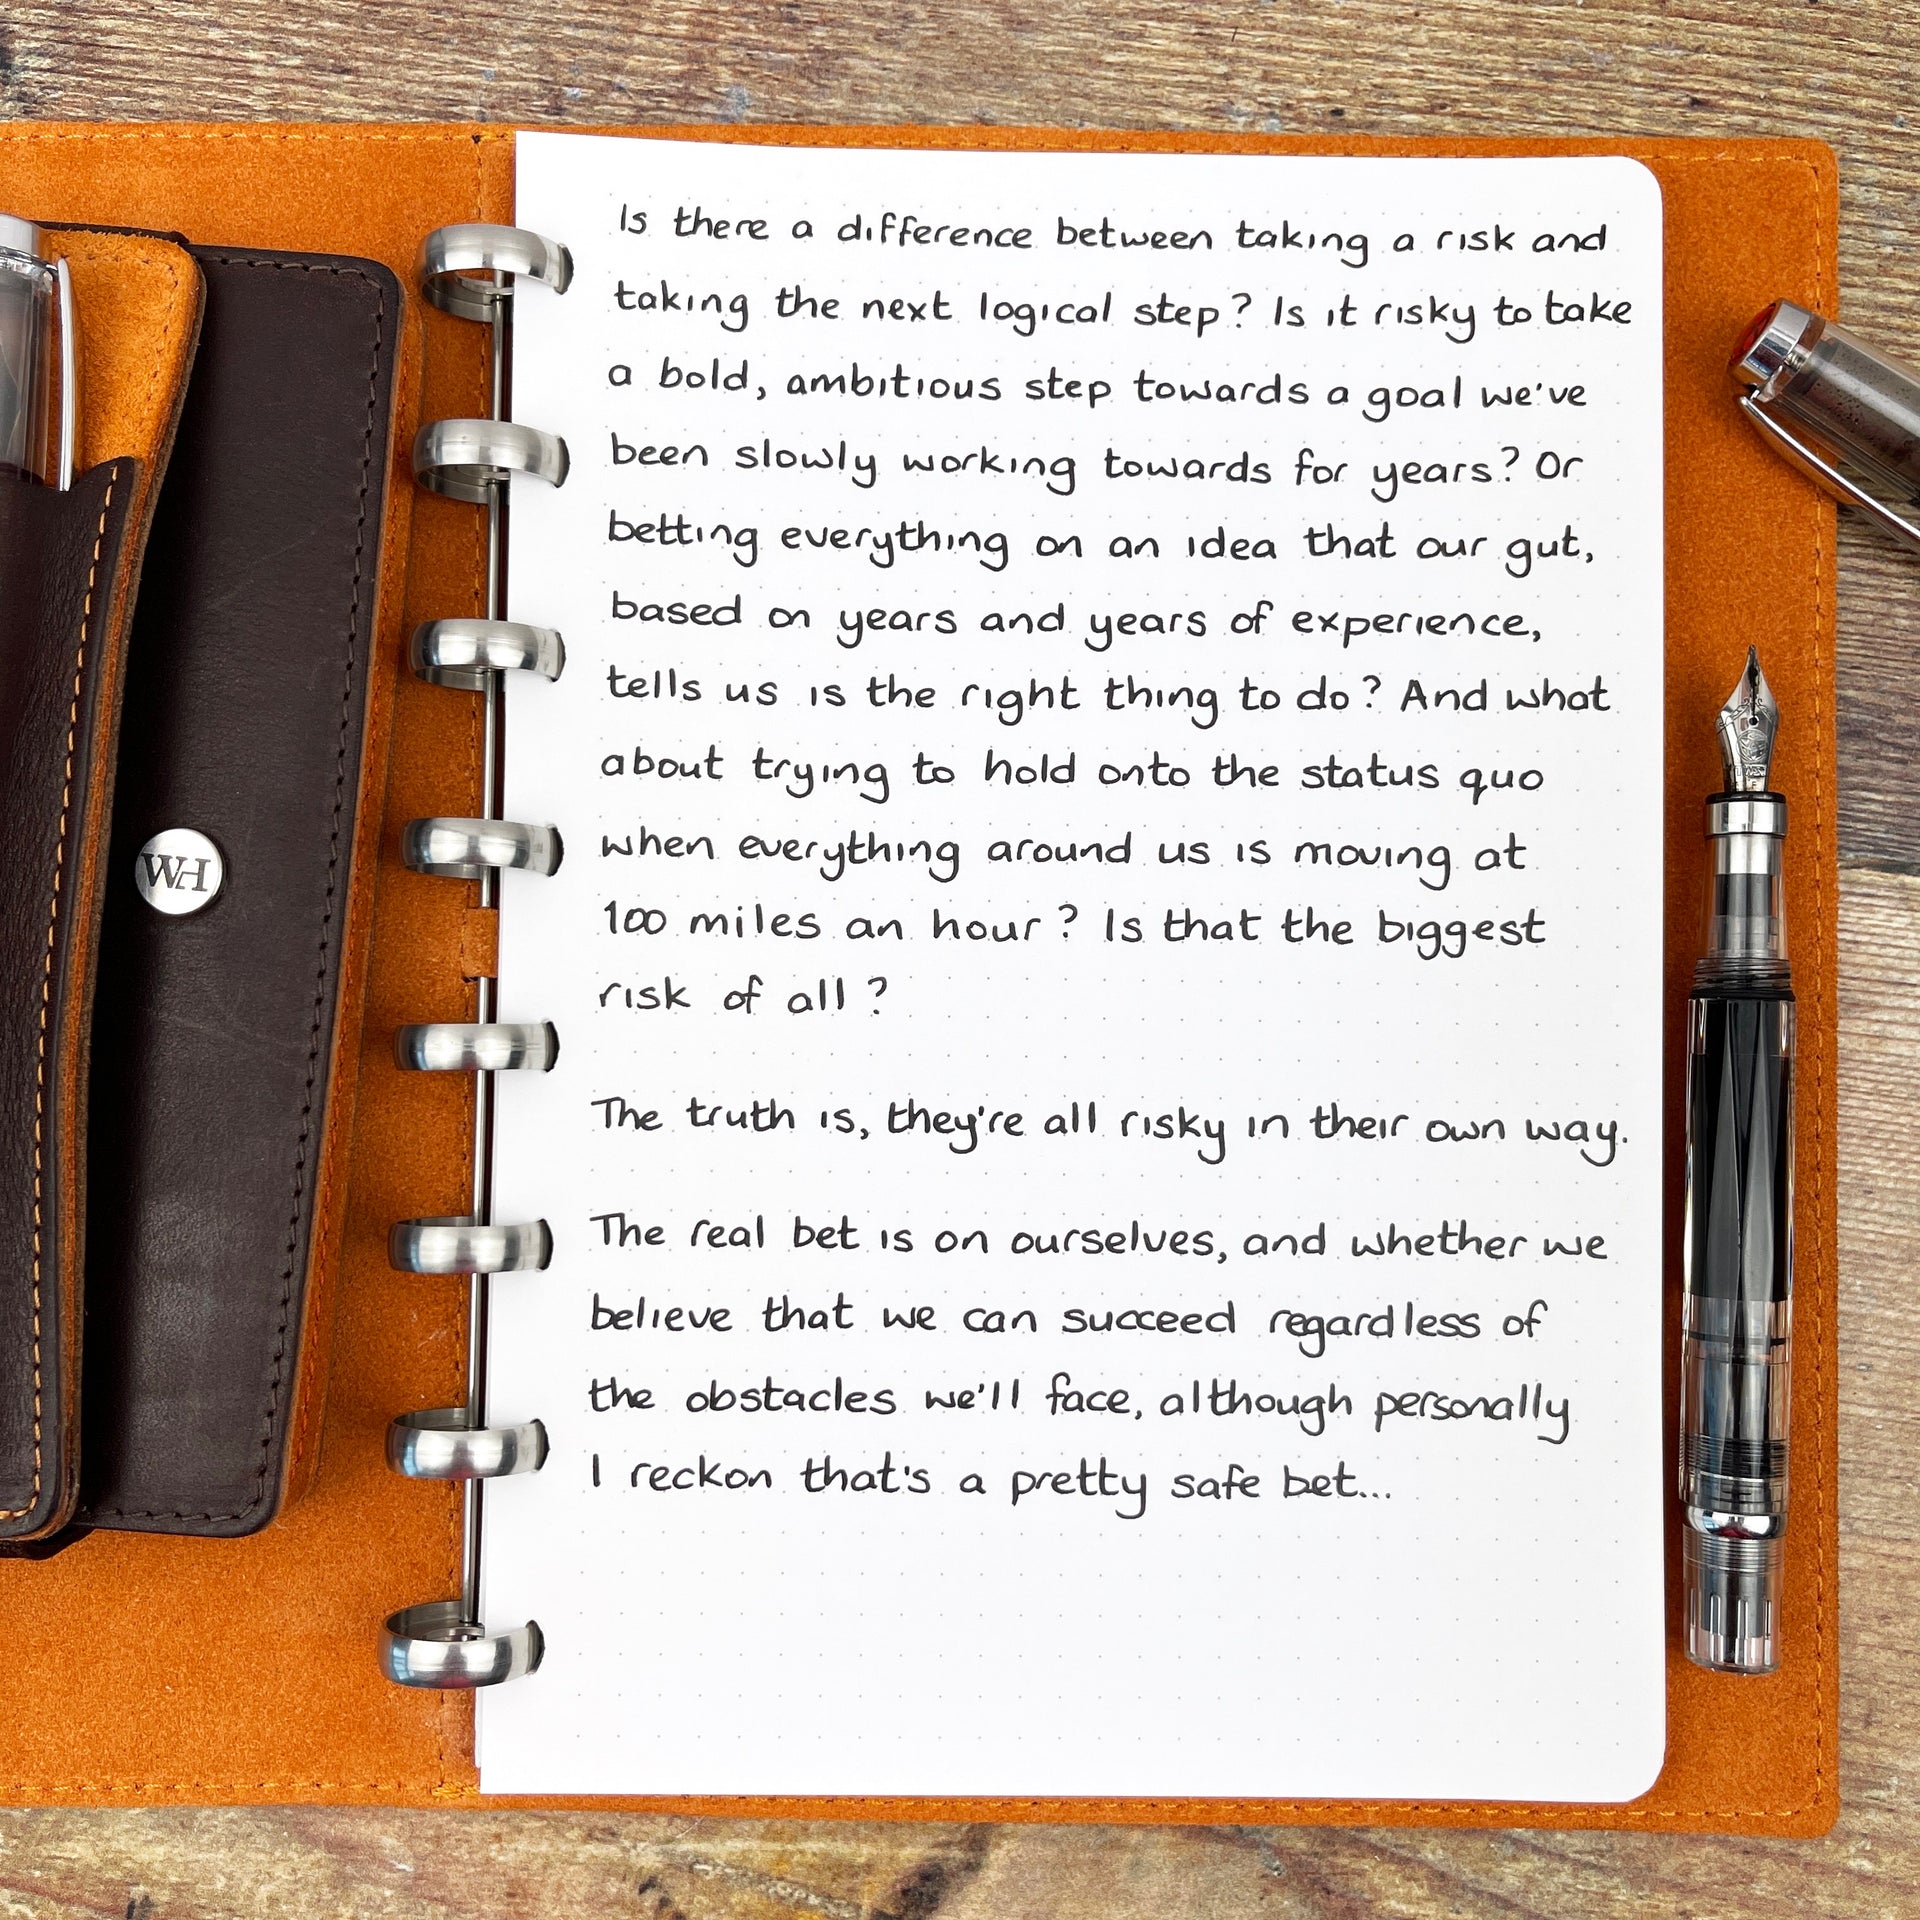 Is there a difference between taking a risk and
taking the next logical step? Is it risky to take
a bold, ambitious step towards a goal we've
been slowly working towards for years? Or
betting everything on an idea that our gut,
based on years and years of experience,
tells us is the right thing to do? And what
about trying to hold onto the status quo
when everything around us is moving at
100 miles an hour? Is that the biggest
risk of all?
The truth is, they're all risky in their own way.
The real bet is on ourselves, and whether we
believe that we can succeed regardless of
the obstacles we'll face, although personally
I reckon that's a pretty safe bet...
WH